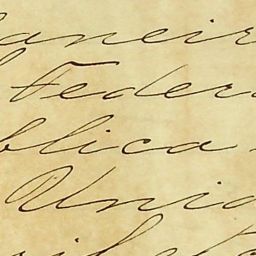 aneir
Federa
blica
Unid